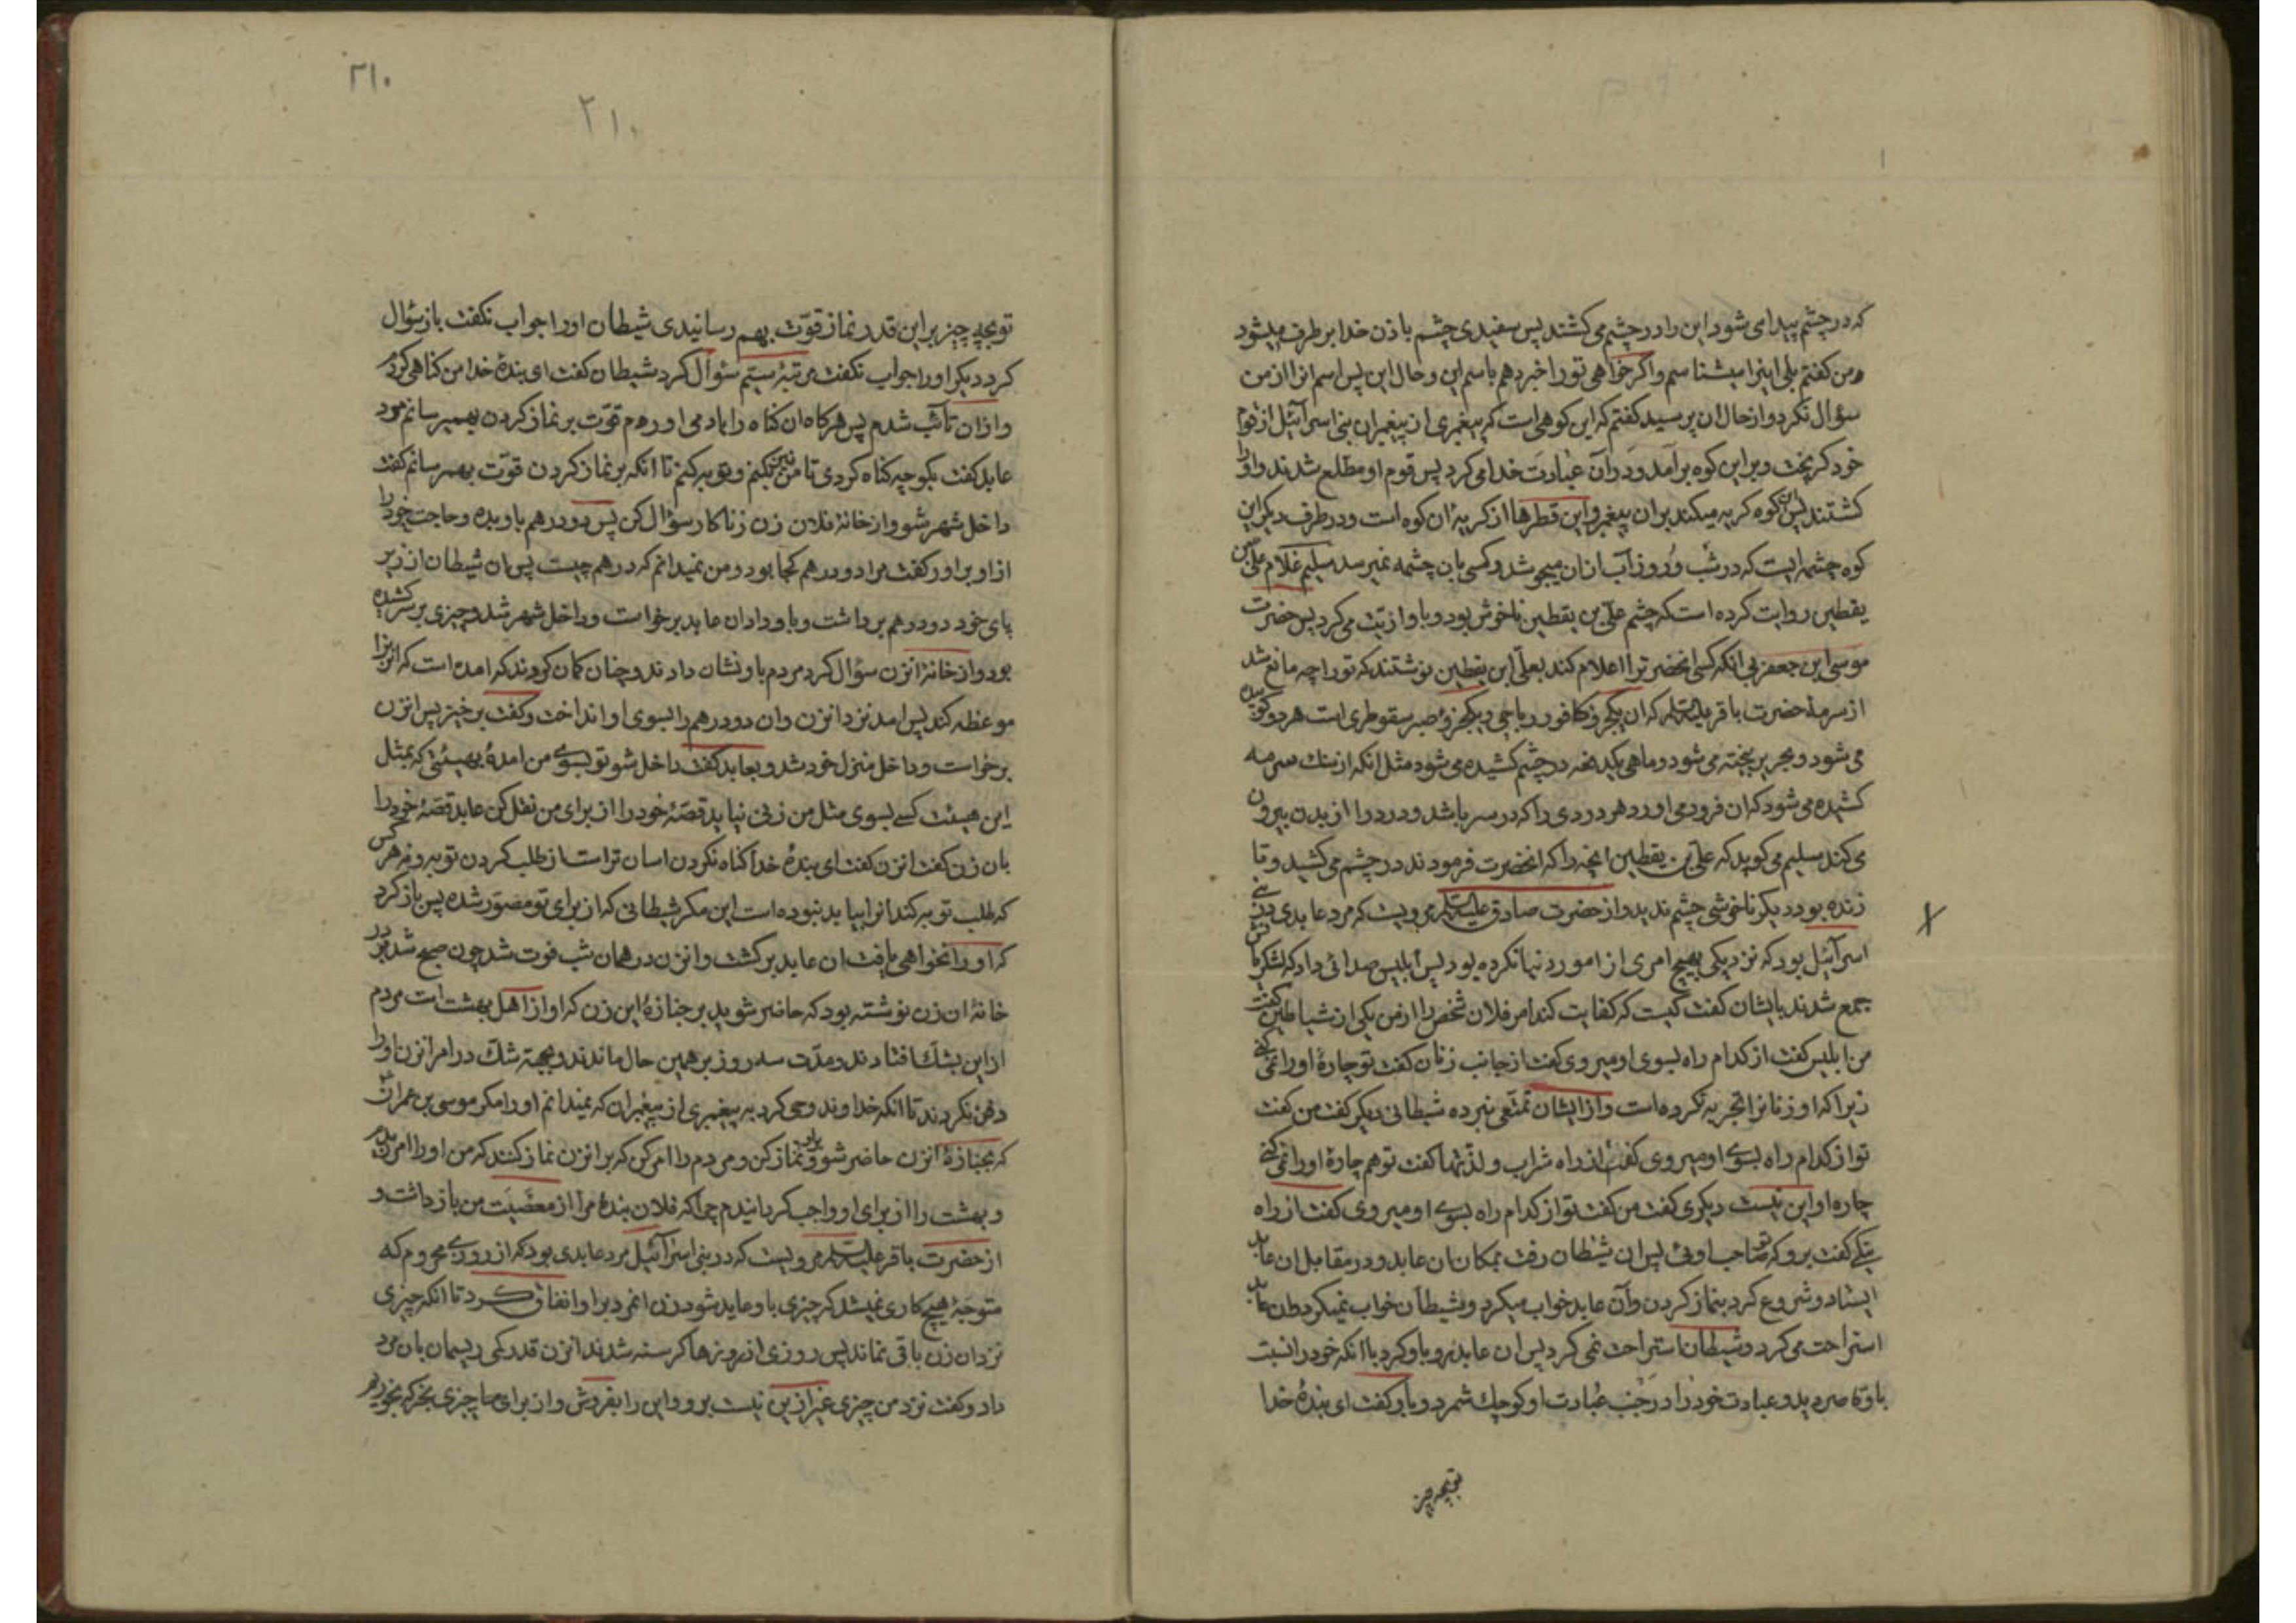 که در چشم پیدا می شود این را در چشم می کشند پس سفیدی چشم باذن خدا برطرف میشود
ومن کفتم بلی اینرا میشناسم واکر خواهی تو را خبر دهم باسم این وحال این پس اسم انرا از من
سؤال نکرد واز حال ان پرسید کفتم که این کوهی است که پیغمبری از پیغمبران بنی اسرآئیل از قوم
خود کریخت وبر این کوه برآمد ودر آن عبادت خدا می کرد پس قوم او مطلع شدند واورا
کشتند پس این کوه کریه میکند بر ان پیغمبر واین قطرها از کریهٔ ان کوه است ودر طرف دیکر این
کوه چشمه ایست که در شب وروز آب از ان میجوشد وکسی بان چشمه نمیرسد سلیم غلام علی بن
یقطین روایت کرده است که چشم علی بن یقطین ناخوش بود وباو اذیت می کرد پس حضرت
موسی ابن جعفر بی انکه کسی انحضرترا اعلام کند بعلی ابن یقطین نوشتند که تو را چه مانع شد
از سرمهٔ حضرت باقر علیه السلام که ان یکجزؤ کافور رباحی ویکجزؤ صبر سقوطری است هر دو کوبیده
می شود وبحریر بیخته می شود وماهی یکدفعه در چشم کشیده می شود مثل انکه از سنك سرمه
کشیده می شود که ان فرود می اورد هر دردی را که در سر باشد ودرد را از بدن بیرون
می کند سلیم می کوید که علی بن یقطین انچه را که انحضرت فرمودند در چشم می کشید وتا
زنده بود دیکر ناخوشی چشم ندید واز حضرت صادق علیه السلام مرویست که مرد عابدی در بنی
اسرآئیل بود که نزدیکی بهیچ امری از امور دنیا نکرده بود پس ابلیس صدائی داد که لشکریانش
جمع شدند بایشان کفت کیست که کفایت کند امر فلان شخص را از من یکی از شیاطین کفت
من ابلیس کفت از کدام راه بسوی او میروی کفت از جانب زنان کفت تو چارهٔ او را نمی کنی
زیرا که او زنانرا تجربه نکرده است واز ایشان تمتعی نبرده شیطانی دیکر کفت من کفت
تو از کدام راه بسوی او میروی کفت از راه شراب ولذتها کفت تو هم چارهٔ او را نمی کنی
چاره او این نیست دیکری کفت من کفت تو از کدام راه بسوی او میروی کفت از راه
نیکی کفت برو که تو صاحب اوئی پس ان شیطان رفت بمکان ان عابد ودر مقابل ان عابد
ایستاد وشروع کرد بنماز کردن وآن عابد خواب میکرد وشیطان خواب نمیکرد وان عابد
استراحت می کرد وشیطان استراحت نمی کرد پس ان عابد رو باو کرد با انکه خود را نسبت
باو قاصر دید وعبادت خود را در جنب عبادت او کوچك شمرد وباو کفت ای بندهٔ خدا
تو بچه چیز
۲۱۰
۲۱۰
تو بچه چیز بر این قدر نماز قوت بهم رسانیدی شیطان او را جواب نکفت باز سؤال
کرد دیکر او را جواب نکفت مرتبهٔ سیم سؤال کرد شیطان کفت ای بندهٔ خدا من کناهی کردم
واز ان تآئب شدم پس هرکاه ان کناه را یاد می اورم قوت بر نماز کردن بهمیرسانم مرد
عابد کفت بکو چه کناه کردی تا من نیز بکنم وتوبه کنم تا انکه بر نماز کردن قوت بهمرسانم کفت
داخل شهر شو واز خانهٔ فلان زن زناکار سؤال کن پس دو درهم باو بده وحاجت خود را
از او براور کفت مرا دو درهم کجا بود ومن نمیدانم که درهم چیست پس ان شیطان از زیر
پای خود دو درهم برداشت وباو داد ان عابد برخواست وداخل شهر شد وچیزی بر سر کشیده
بود واز خانهٔ انزن سؤال کرد مردم باو نشان دادند وچنان کمان کردند که امده است که انزنرا
موعظه کند پس امد نزد انزن وان دو درهم را بسوی او انداخت وکفت برخیز پس انزن
برخواست وداخل منزل خود شد وبعابد کفت داخل شو تو بسوی من امدهٔ بهیئتی که بمثل
این هیئت کسی بسوی مثل من زنی نیاید قصهٔ خود را از برای من نقل کن عابد قصهٔ خود را
بان زن کفت انزن کفت ای بندهٔ خدا کناه نکردن اسان تر است از طلب کردن توبه ونه هر کس
که طلب توبه کند انرا بیابد نبوده است این مکر شیطانی که از برای تو مصور شده پس باز کرد
که او را نخواهی یافت ان عابد برکشت وانزن در همان شب فوت شد چون صبح شد بر در
خانهٔ ان زن نوشته بود که حاضر شوید بر جنازهٔ این زن که او از اهل بهشت است مردم
از این بشك افتادند ومدت سه روز بر همین حال ماندند وبجهة شك در امر انزن او را
دفن نکردند تا انکه خداوند وحی کرد به پیغمبری از پیغمبران که نمیدانم او را مکر موسی بن عمران
که بجنازهٔ انزن حاضر شو وبر او نماز کن ومردم را امر کن که بر انزن نماز کنند که من او را امرزیدم
وبهشت را از برای او واجب کردانیدم چرا که فلان بندهٔ مرا از معصیت من باز داشت و
از حضرت باقر علیه السلام مرویست که در بنی اسرآئیل مرد عابدی بود که از روزی محروم که
متوجهٔ هیچ کاری نمیشد که چیزی باو عاید شود زن انمرد بر او انفاق کرد تا انکه چیزی
نزد ان زن باقی نماند پس روزی از روزها کرسنه شدند انزن قدرکی ریسمان بان مرد
داد وکفت نزد من چیزی غیر از این نیست برو واین را بفروش واز برای ما چیزی بخر که بخوریم